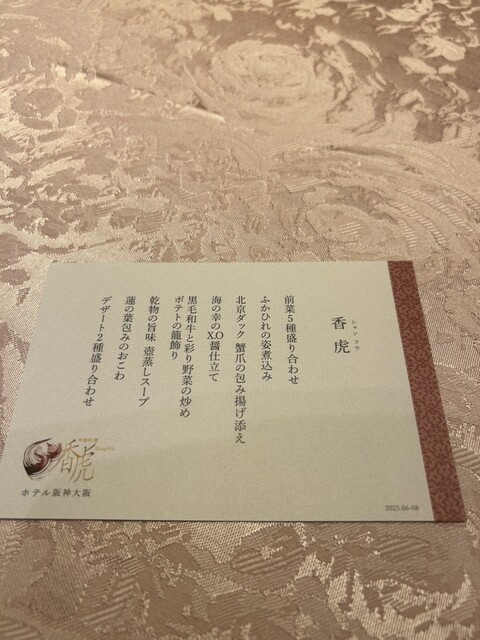 香虎
シャンフウ
前菜5種盛り合わせ
ふかひれの姿煮込み
北京ダック 蟹爪の包み揚げ添え
海の幸のX.O醤仕立て
黒毛和牛と彩り野菜の炒め
ポテトの籠飾り
乾物の旨味 壺蒸しスープ
蓮の葉包みのおこわ
デザート2種盛り合わせ
香虎
ホテル阪神大阪
2025.06-08